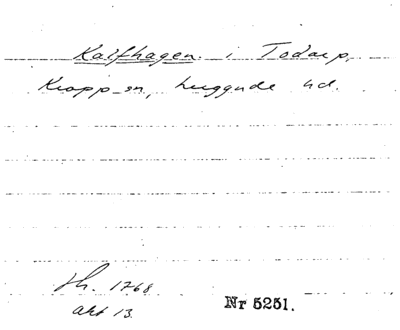 Kalfhagen i Todarp,
Kropp sn, Luggude hd.
Sh. 1768
akt 13.
Nr 5251.